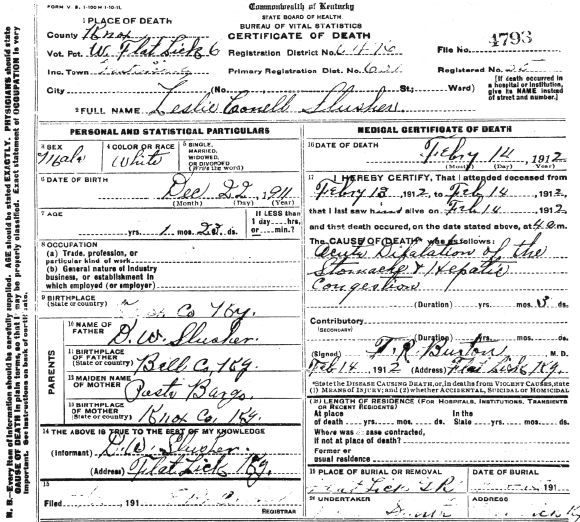 FORM V. S. 1-100M 1-10-11.
Commonwealth of Kentucky
STATE BOARD OF HEALTH.
BUREAU OF VITAL STATISTICS
CERTIFICATE OF DEATH
1 PLACE OF DEATH
County Knox
Vot. Pct. W. Flat Lick 6
Inc. Town
City (No. St.; Ward)
Registration District No.
Primary Registration Dist. No.
File No. 4793
Registered No. 25
(If death occurred in a hospital or institution, give its NAME instead of street and number.)
2 FULL NAME Leslie Conell Slusher
PERSONAL AND STATISTICAL PARTICULARS
3 SEX Male
4 COLOR OR RACE White
5 SINGLE, MARRIED, WIDOWED, OR DIVORCED (Write the word)
6 DATE OF BIRTH Dec 22, 1911
(Month) (Day) (Year)
7 AGE
yrs. 1 mos. 23 ds.
If LESS than 1 day---hrs. or---min.?
8 OCCUPATION
(a) Trade, profession, or particular kind of work
(b) General nature of industry business, or establishment in which employed (or employer)
9 BIRTHPLACE (State or country) Co Ky.
PARENTS
10 NAME OF FATHER D. W. Slusher
11 BIRTHPLACE OF FATHER (State or country) Bell Co, Ky.
12 MAIDEN NAME OF MOTHER
13 BIRTHPLACE OF MOTHER (State or country) Knox Co, Ky.
14 THE ABOVE IS TRUE TO THE BEST OF MY KNOWLEDGE
(Informant) D. W. Slusher
(Address) Flat Lick Ky.
15
Filed 191
REGISTRAR
MEDICAL CERTIFICATE OF DEATH
16 DATE OF DEATH Febry 14, 1912
(Month) (Day) (Year)
17 I HEREBY CERTIFY, That I attended deceased from
Febry 13, 1912, to Feb 14, 1912,
that I last saw h alive on Feb 14, 1912
and that death occurred, on the date stated above, at 4 a m.
The CAUSE OF DEATH was as follows:
Acute Dilatation of the
Stomache & Hepatic
Congestion
(Duration) yrs. mos. 3 ds.
Contributory
(SECONDARY)
(Duration) yrs. mos. ds.
(Signed) T. R. Burton M. D.
Feb 14, 1912 (Address) Flat Lick Ky.
*State the DISEASE CAUSING DEATH, or, in deaths from VIOLENT CAUSES, state (1) MEANS OF INJURY; and (2) whether ACCIDENTAL, SUICIDAL OR HOMICIDAL
18 LENGTH OF RESIDENCE (FOR HOSPITALS, INSTITUTIONS, TRANSIENTS OR RECENT RESIDENTS)
At place of death yrs. mos. ds. In the State yrs. mos. ds.
Where was disease contracted, if not at place of death?
Former or usual residence
19 PLACE OF BURIAL OR REMOVAL
DATE OF BURIAL
191
20 UNDERTAKER
ADDRESS
N. B.—Every item of information should be carefully supplied. AGE should be stated EXACTLY. PHYSICIANS should state
CAUSE OF DEATH in plain terms, so that it may be properly classified. Exact statement of OCCUPATION is very
important. See instructions on back of certificate.